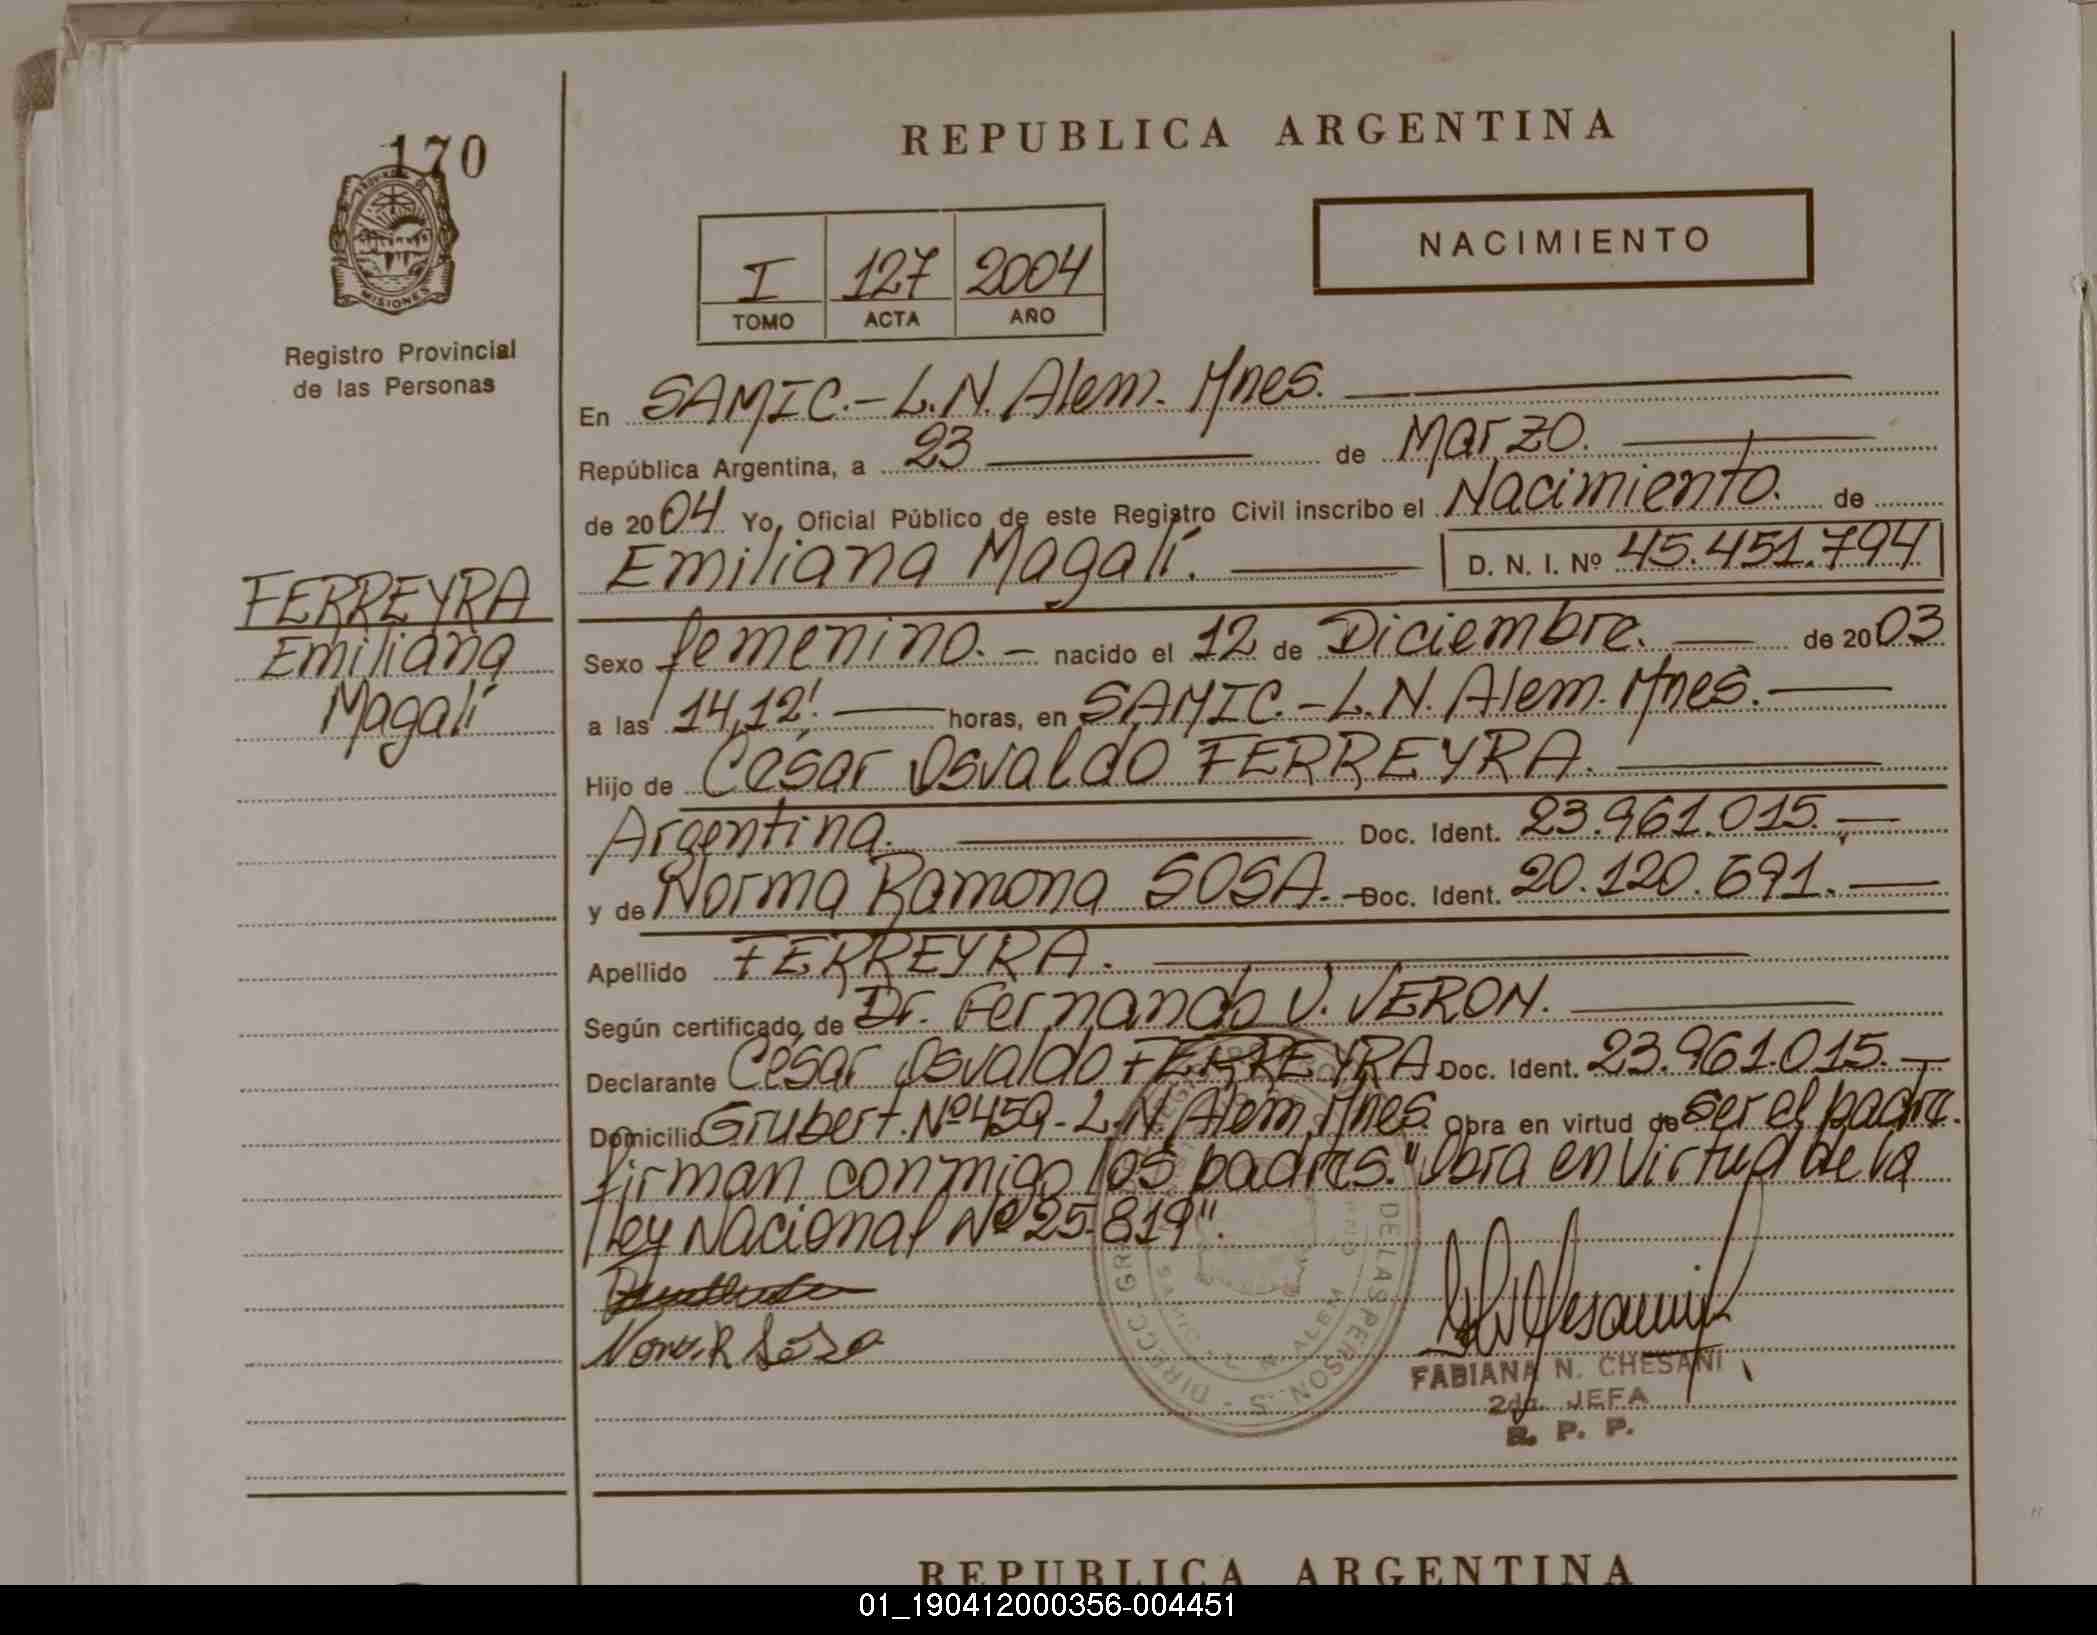 170
PROVINCIA DE
MISIONES
Registro Provincial
de las Personas
FERREYRA
Emiliana
Magalí
REPUBLICA ARGENTINA
NACIMIENTO
I 127 2004
TOMO ACTA AÑO
En SAMIC.- L.N. Alem. Mnes.
República Argentina, a 23 de Marzo.
de 2004 Yo, Oficial Público de este Registro Civil inscribo el Nacimiento. de
Emiliana Magalí. D. N. I. Nº 45.451.794
Sexo femenino. - nacido el 12 de Diciembre. de 2003
a las 14,12'. horas, en SAMIC.- L.N. Alem. Mnes.
Hijo de César Osvaldo FERREYRA.
Argentina. Doc. Ident. 23.961.015.-
y de Norma Ramona SOSA. - Doc. Ident. 20.120.691.-
Apellido FERREYRA.
Según certificado de Dr. Fernando V. VERON.
Declarante César Osvaldo FERREYRA Doc. Ident. 23.961.015.-
Domicilio Grubert. Nº 459- L.N. Alem, Mnes. Obra en virtud de ser el padre.
firman conmigo los padres. "Obra en virtud de la
Ley Nacional Nº 25.819".
FABIANA N. CHESANI
2da. JEFA
R. P. P.
DE LAS PERSONAS
L. N. ALEM
REPUBLICA ARGENTINA
01_190412000356-004451